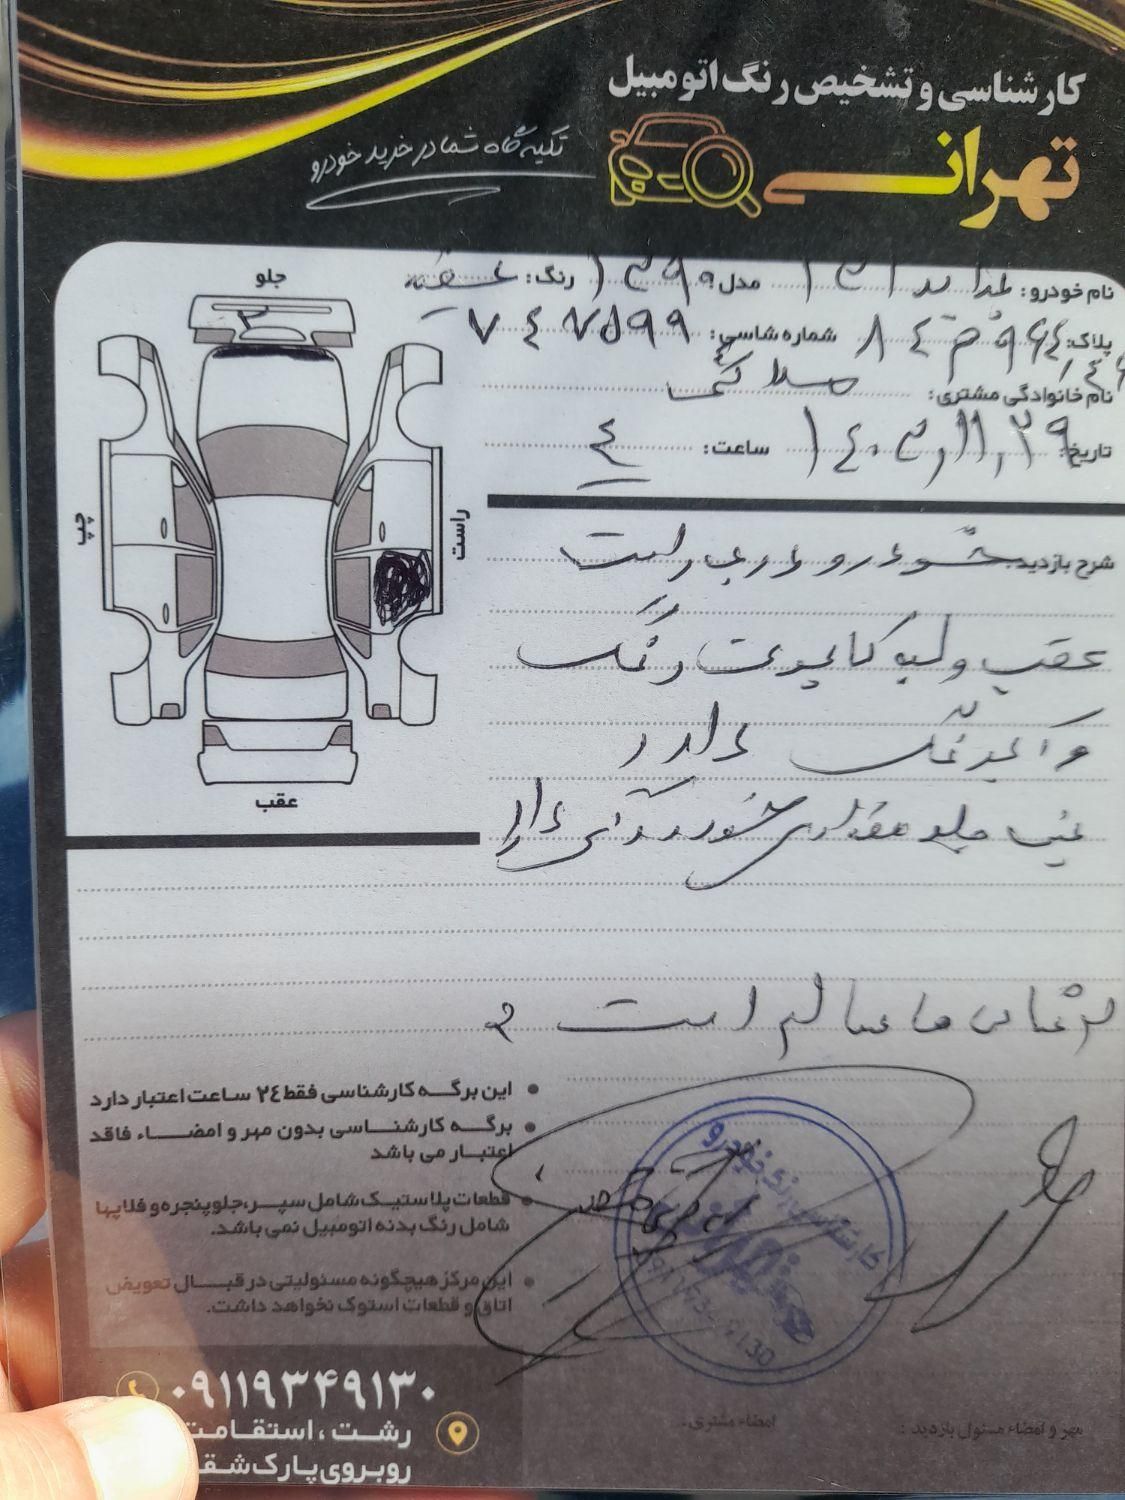 کارشناسی و تشخیص رنگ اتومبیل
تهرانی
تکیه گاه شما در خرید خودرو
نام خودرو: پراید ۱۳۱ مدل: ۱۳۹۹ رنگ: سفید
پلاک: شماره شاسی: ۷۴۷۵۹۹
نام خانوادگی مشتری:
تاریخ: ۱۴۰۳,۱۱,۲۹ ساعت: ۴
جلو
چپ
راست
عقب
شرح بازدید: خودرو درب راست
عقب و لبه کاپوت رنگ
دارد
جلو مقداری خوردگی دارد
شاسی ها سالم است
این برگه کارشناسی فقط ۲۴ ساعت اعتبار دارد
برگه کارشناسی بدون مهر و امضاء فاقد
اعتبار می باشد
قطعات پلاستیک شامل سپر، جلوپنجره و فلاپها
شامل رنگ بدنه اتومبیل نمی باشد.
این مرکز هیچگونه مسئولیتی در قبال تعویض
اتاق و قطعات استوک نخواهد داشت.
کارشناسی رنگ خودرو
مهر و امضاء مسئول بازدید:
امضاء مشتری:
۰۹۱۱۹۳۴۹۱۳۰
رشت، استقامت
روبروی پارک